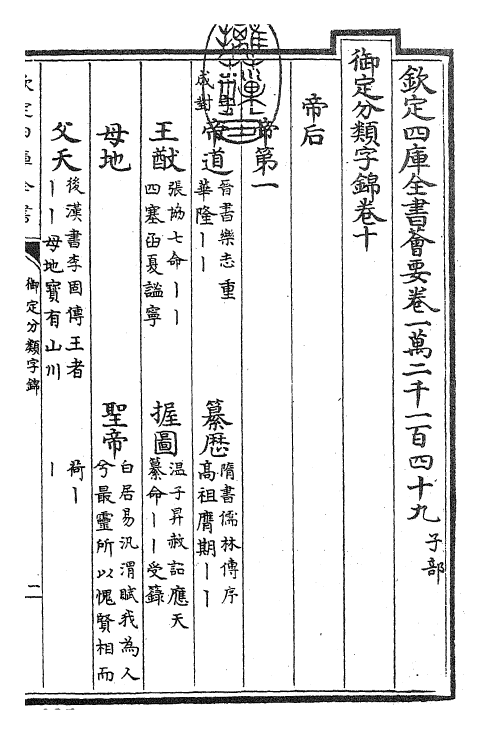 欽定四庫全書薈要卷一萬二千一百四十九 子部
御定分類字錦卷十
帝后
帝第一
成對
帝道 晉書樂志重華隆丨丨
纂歷 隋書儒林傳序高祖膺期丨丨
王猷 張協七命丨丨四塞函夏謐寧
握圖 温子昇赦詔應天纂命丨丨受籙
母地
聖帝 白居易汎渭賦我為人兮最靈所以愧賢相而荷丨丨
父天 後漢書李固傳王者丨丨母地寶有山川
欽定四庫全書
御定分類字錦